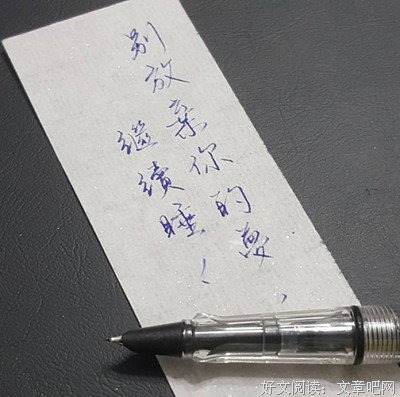 别放弃你的梦，
继续睡！
好文阅读：文章吧网